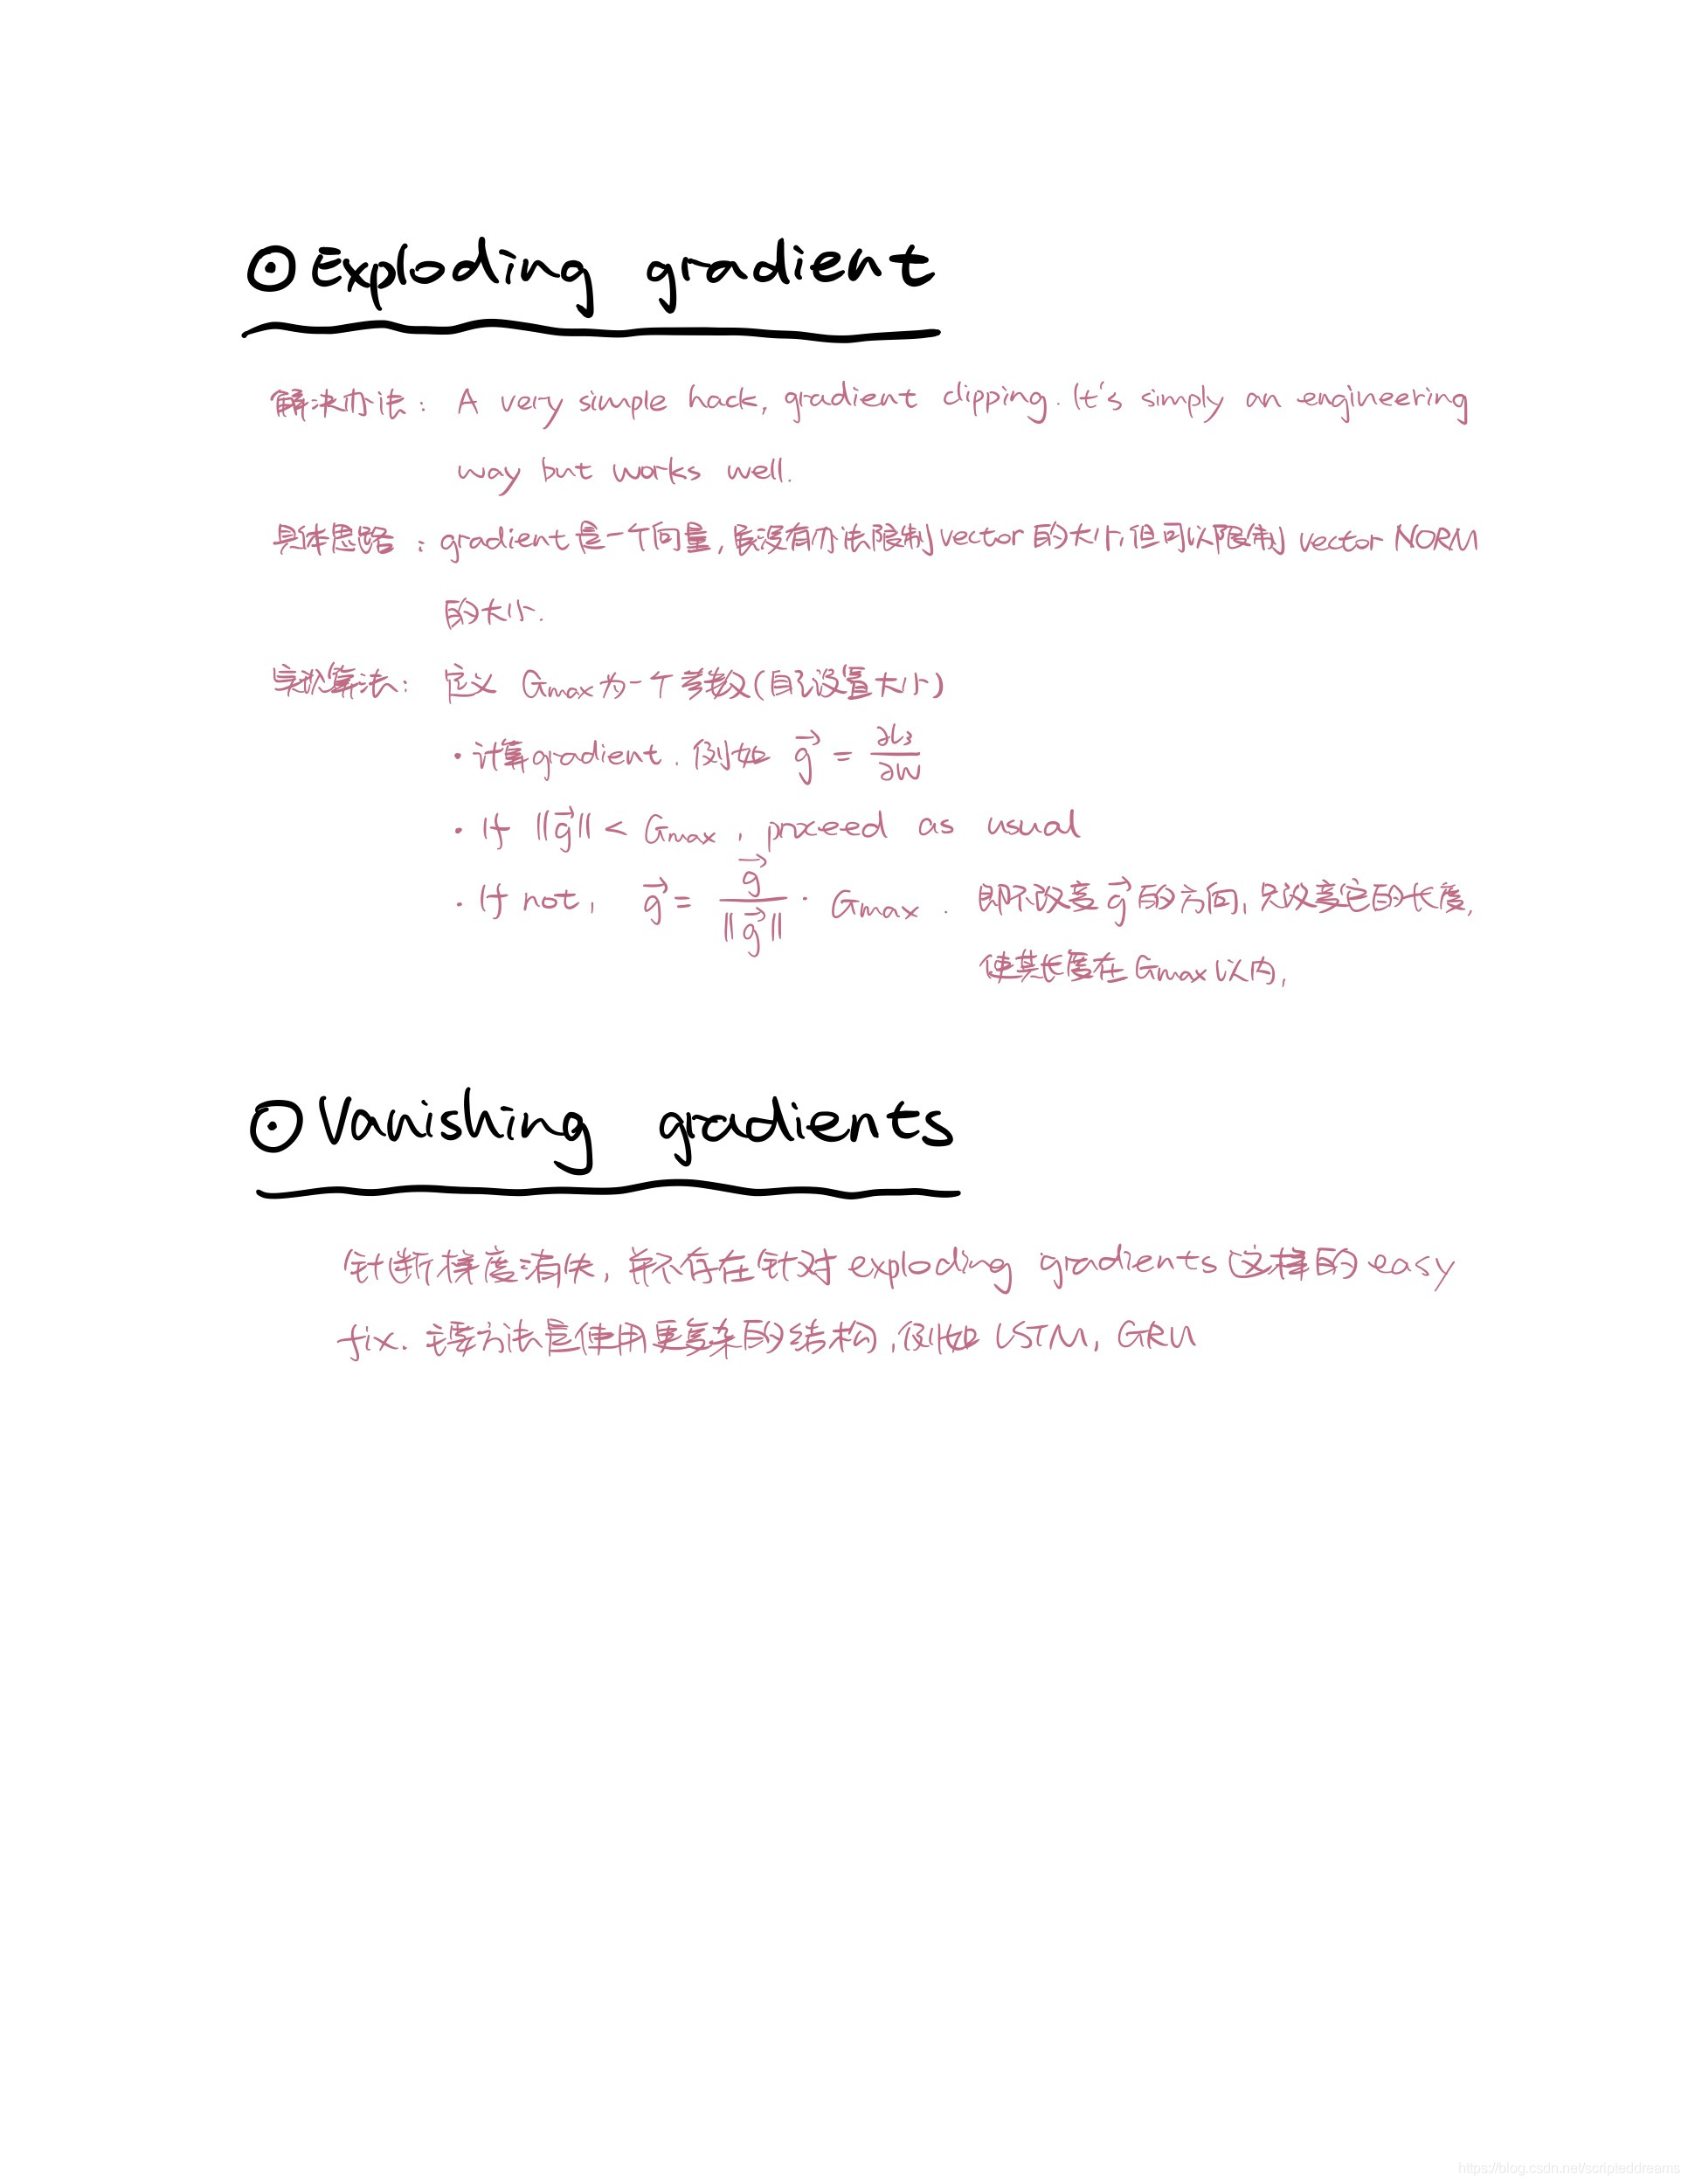 ⊙ Exploding gradient
解决办法: A very simple hack, gradient clipping. It's simply an engineering
way but works well.
具体思路: gradient是一个向量, 虽没有办法限制vector的大小, 但可以限制 vector NORM
的大小.
实现算法: 定义 Gmax为一个参数(自己设置大小)
· 计算gradient. 例如 g⃗ = ∂L₃/∂W
· If ||g⃗|| < Gmax, proceed as usual
· If not, g⃗ = g⃗/||g⃗|| · Gmax. 即不改变g⃗的方向, 只改变它的长度,
使其长度在Gmax以内,
⊙ Vanishing gradients
针断梯度消失, 并不存在针对exploding gradients这样的easy
fix. 主要方法是使用更复杂的结构, 例如 LSTM, GRU
https://blog.csdn.net/scripteddreams